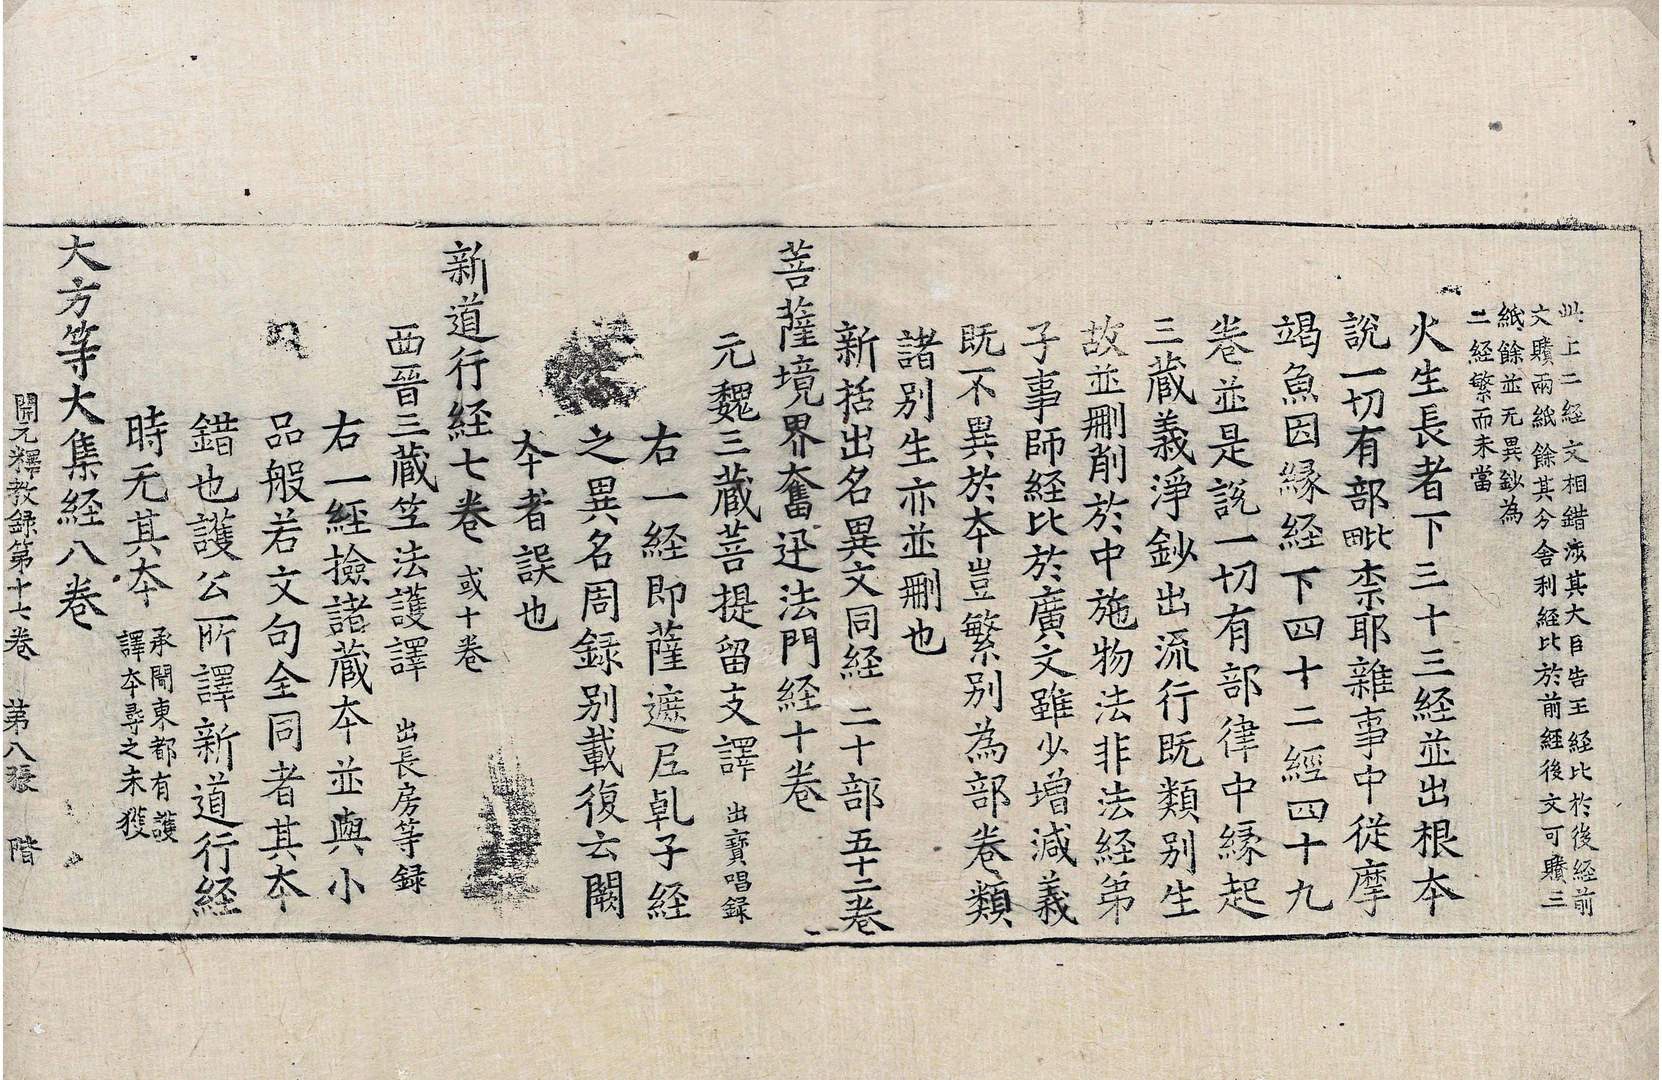 此上二経文相錯渉其大臣告王経比於後経前
文賸兩紙餘其今舍利経比於前経後文可賸三
紙餘並无異鈔為
二経繁而未當
火生長者下三十三経並出根本
說一切有部毗柰耶雜事中從摩
竭魚因縁経下四十二經四十九
卷並是說一切有部律中縁起
三藏義淨鈔出流行既類別生
故並刪削於中施物法非法経第
子事師経比於廣文雖少增減義
既不異於夲豈繁別為部卷類
諸別生亦並刪也
新括出名異文同経二十部五十二卷
菩薩境界奮迅法門経十卷
元魏三藏菩提留支譯 出寶唱録
右一経即薩遮尼乹子経
之異名周録別載復云闕
夲者誤也
新道行経七卷 或十卷
西晉三藏竺法護譯 出長房等録
右一經撿諸藏夲並與小
品般若文句全同者其夲
錯也護公所譯新道行経
時无其夲 承聞東都有護
譯夲尋之未獲
大方等大集経八卷
開元釋教録第十七卷 第八張 階